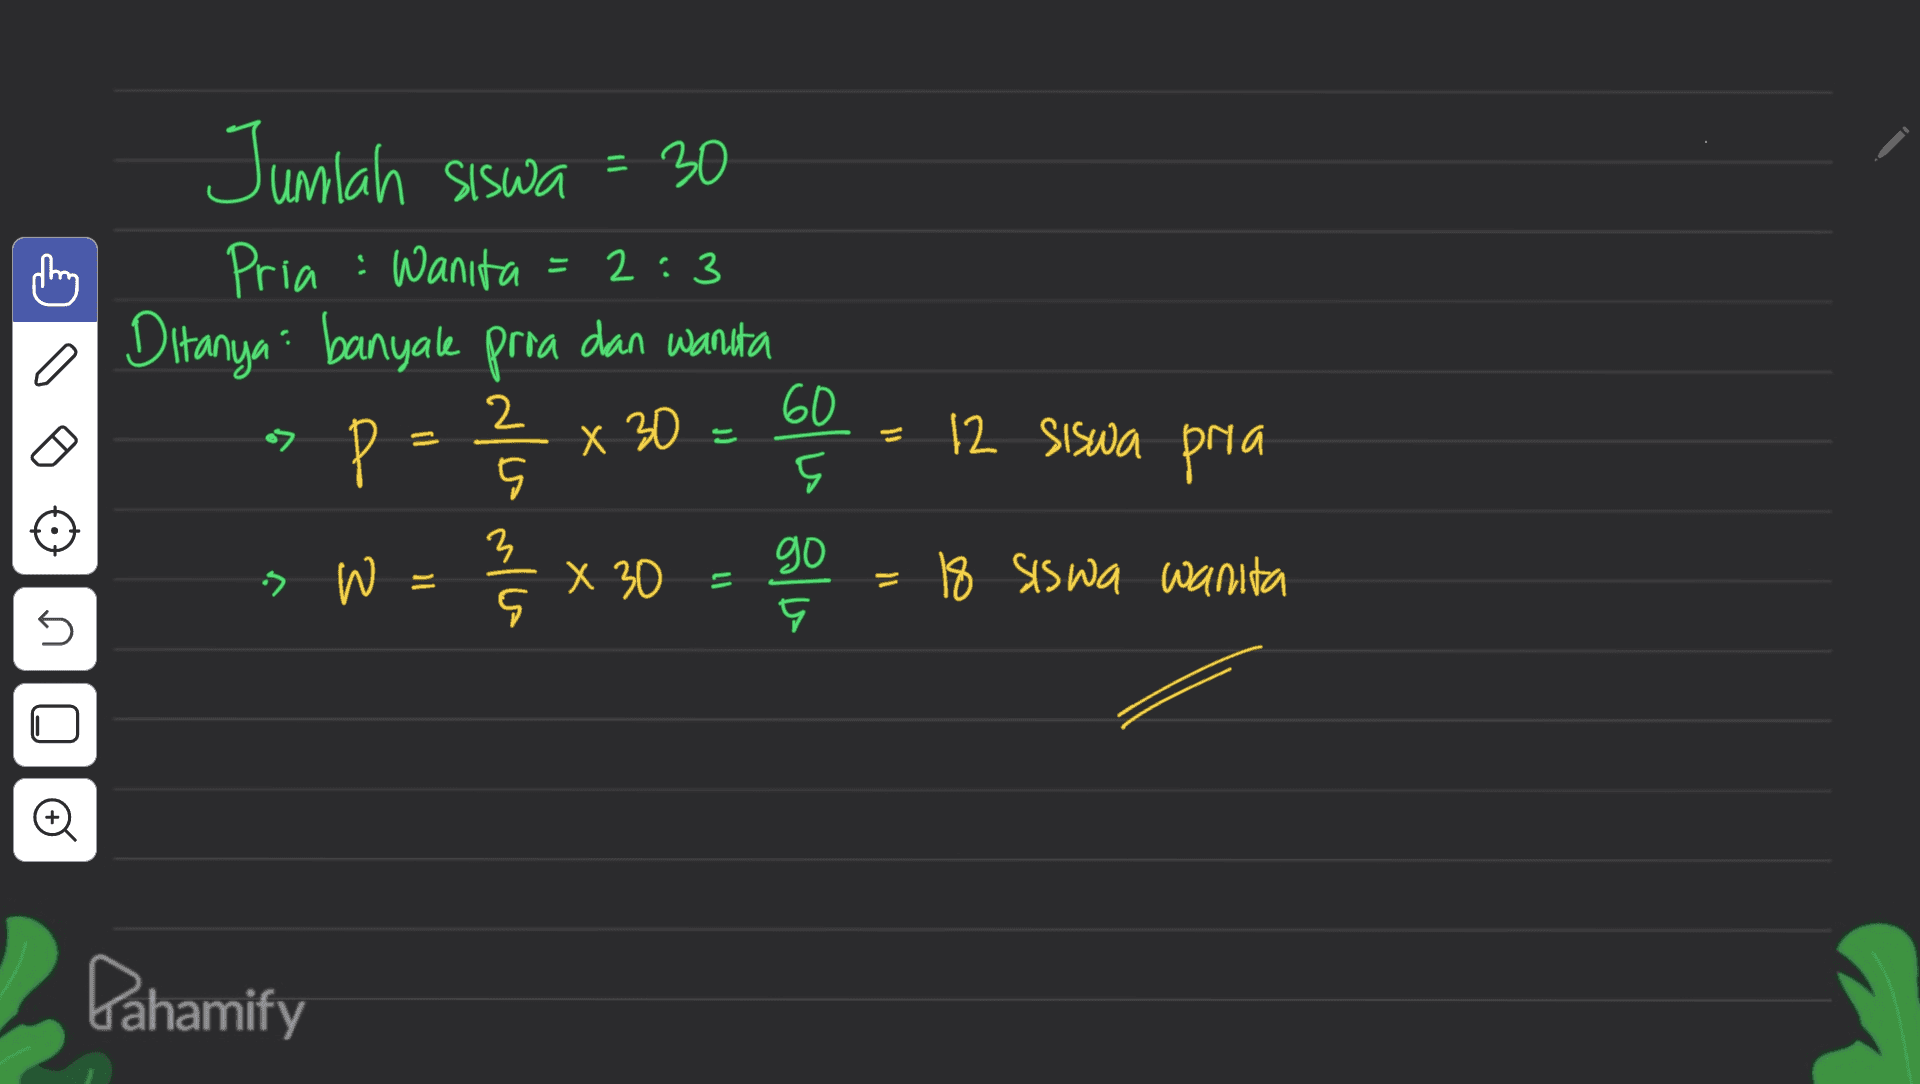 Jumlah siswa = 30
Pria : Wanita = 2 : 3
Ditanya : banyak pria dan wanita
→ P = 2/5 x 30 = 60/5 = 12 siswa pria
→ W = 3/5 x 30 = 90/5 = 18 siswa wanita
Pahamify